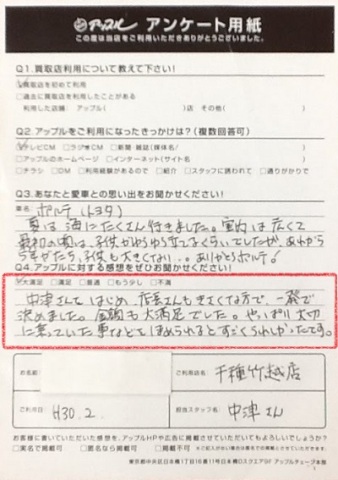 アップル アンケート用紙
この度は当店をご利用いただきありがとうございました。
Q1.買取店利用について教えて下さい!
買取店を初めて利用
過去に買取店を利用したことがある
利用した店舗: アップル( )店 その他( )
Q2.アップルをご利用になったきっかけは?(複数回答可)
テレビCM ラジオCM 新聞・雑誌(媒体名/ )
アップルのホームページ インターネット(サイト名 )
チラシ DM 利用経験があるので 紹介 スタッフに誘われて 通りがかりで
Q3.あなたと愛車との思い出をお聞かせください!
車名: ポルテ(トヨタ)
夏は海にたくさん行きました。室内は広くて
最初の頃は、子供がゆらゆら立てるくらいでしたが、あれから
子供も大きくない。。ありがとうポルテ!
Q4.アップルに対する感想をぜひお聞かせください!
大満足 満足 普通 もう少し 不満
中津さんをはじめ、店長さんもきさくな方で、一発で
決めました。金額も大満足でした。やっぱり大切
に乗っていた車なのでほめられるとすごくうれしかったです。
お名前:
ご利用店名: 千種竹越店
ご利用日: H30.2.
担当スタッフ名: 中津さん
お客様に書いていただいた感想を、アップルHPや広告に掲載させていただいてもよろしいでしょうか?
実名で掲載可 匿名なら掲載可 不可
東京都中央区日本橋1丁目16番11号日本橋Dスクエア5F アップルチェーン本部